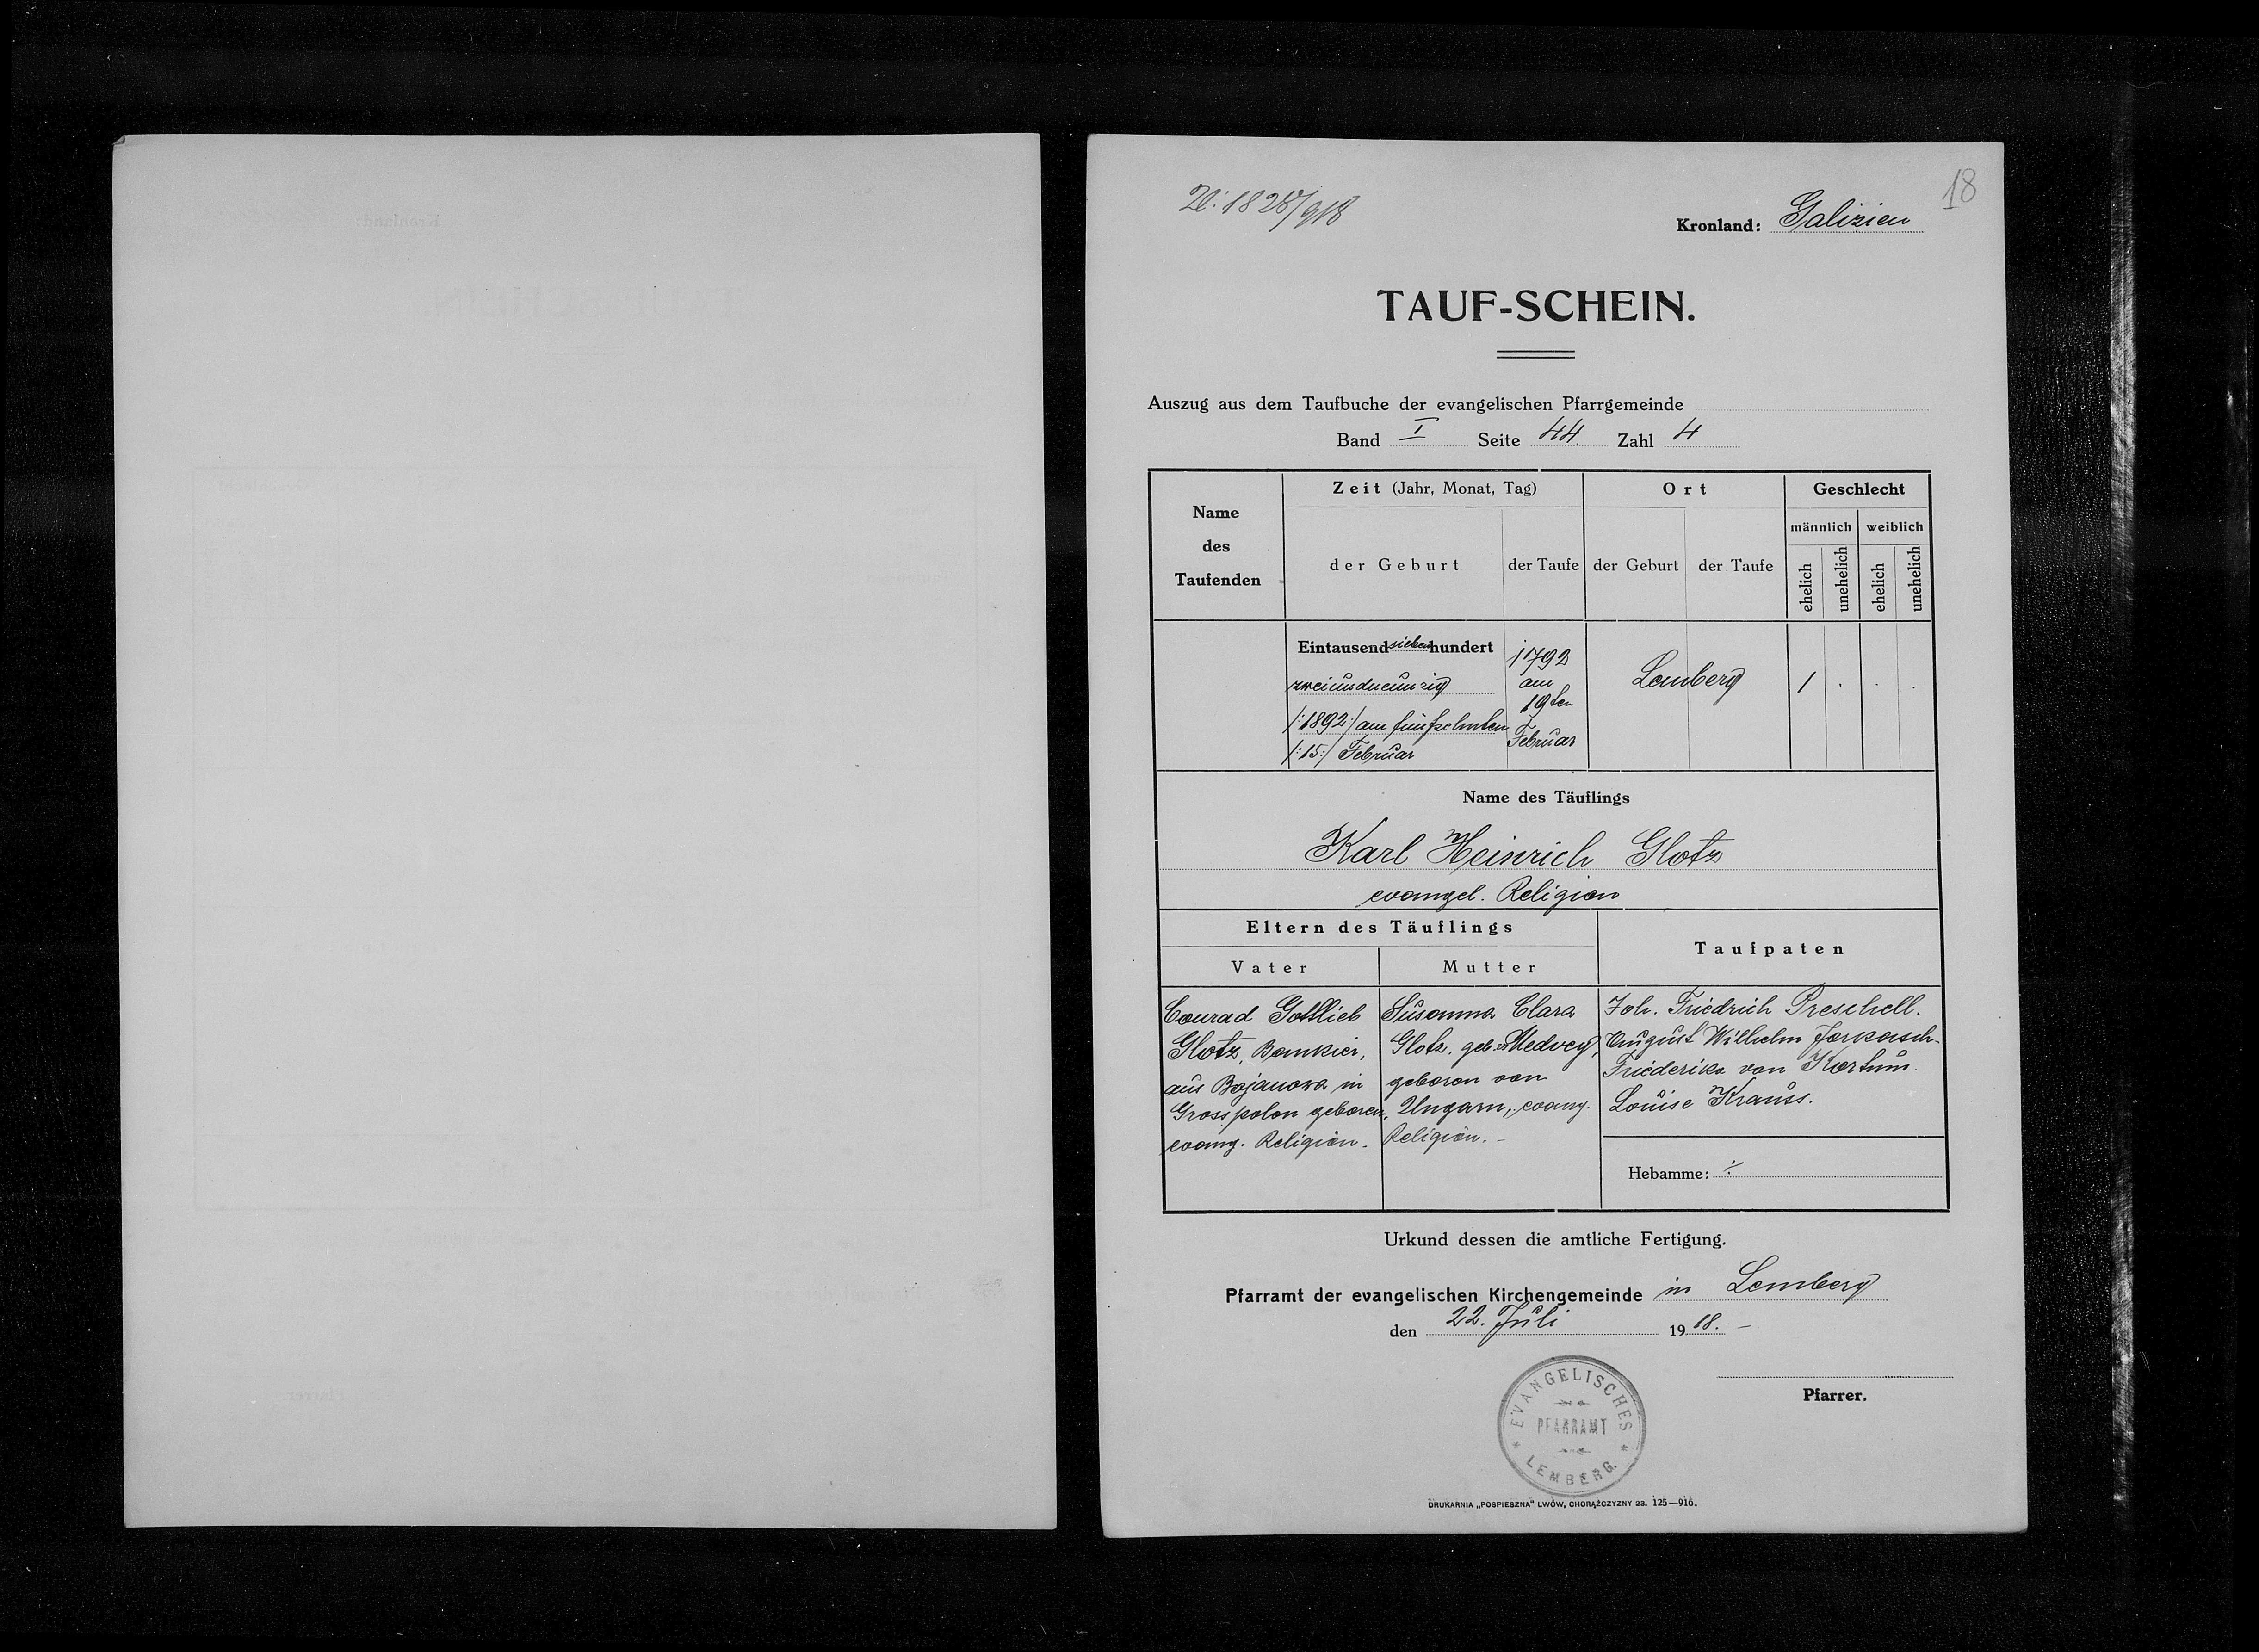 18
Zl: 1825/918
Kronland: Galizien
TAUF-SCHEIN.
Auszug aus dem Taufbuche der evangelischen Pfarrgemeinde
Band I Seite 44 Zahl 4
Name des Taufenden
Zeit (Jahr, Monat, Tag)
der Geburt
der Taufe
Ort
der Geburt
der Taufe
Geschlecht
männlich
weiblich
ehelich
unehelich
ehelich
unehelich
Eintausend sieben hundert
zweiundneunzig
/:1892:/ am fünfzehnten
/:15:/ Februar
1792
am
19ten
Februar
Lemberg
1 . . .
Name des Täuflings
Karl Heinrich Glotz
evangel. Religion
Eltern des Täuflings
Vater
Mutter
Taufpaten
Conrad Gottlieb
Glotz, Bankier,
aus Bojanowa in
Grosspolen geboren,
evang. Religion.
Susanna Clara
Glotz. geb. Medvey,
geboren von
Ungarn, evang.
Religion. -
Joh. Friedrich Preschell.
August Wilhelm Jarkasch-
Friederike von Kortum.
Louise Krauss.
Hebamme: ·/.
Urkund dessen die amtliche Fertigung.
Pfarramt der evangelischen Kirchengemeinde in Lemberg
den 22. Juli 1918. -
Pfarrer.
EVANGELISCHES
PFARRAMT
LEMBERG.
DRUKARNIA „POSPIESZNA" LWÓW, CHORĄŻCZYZNY 23. 125—916.